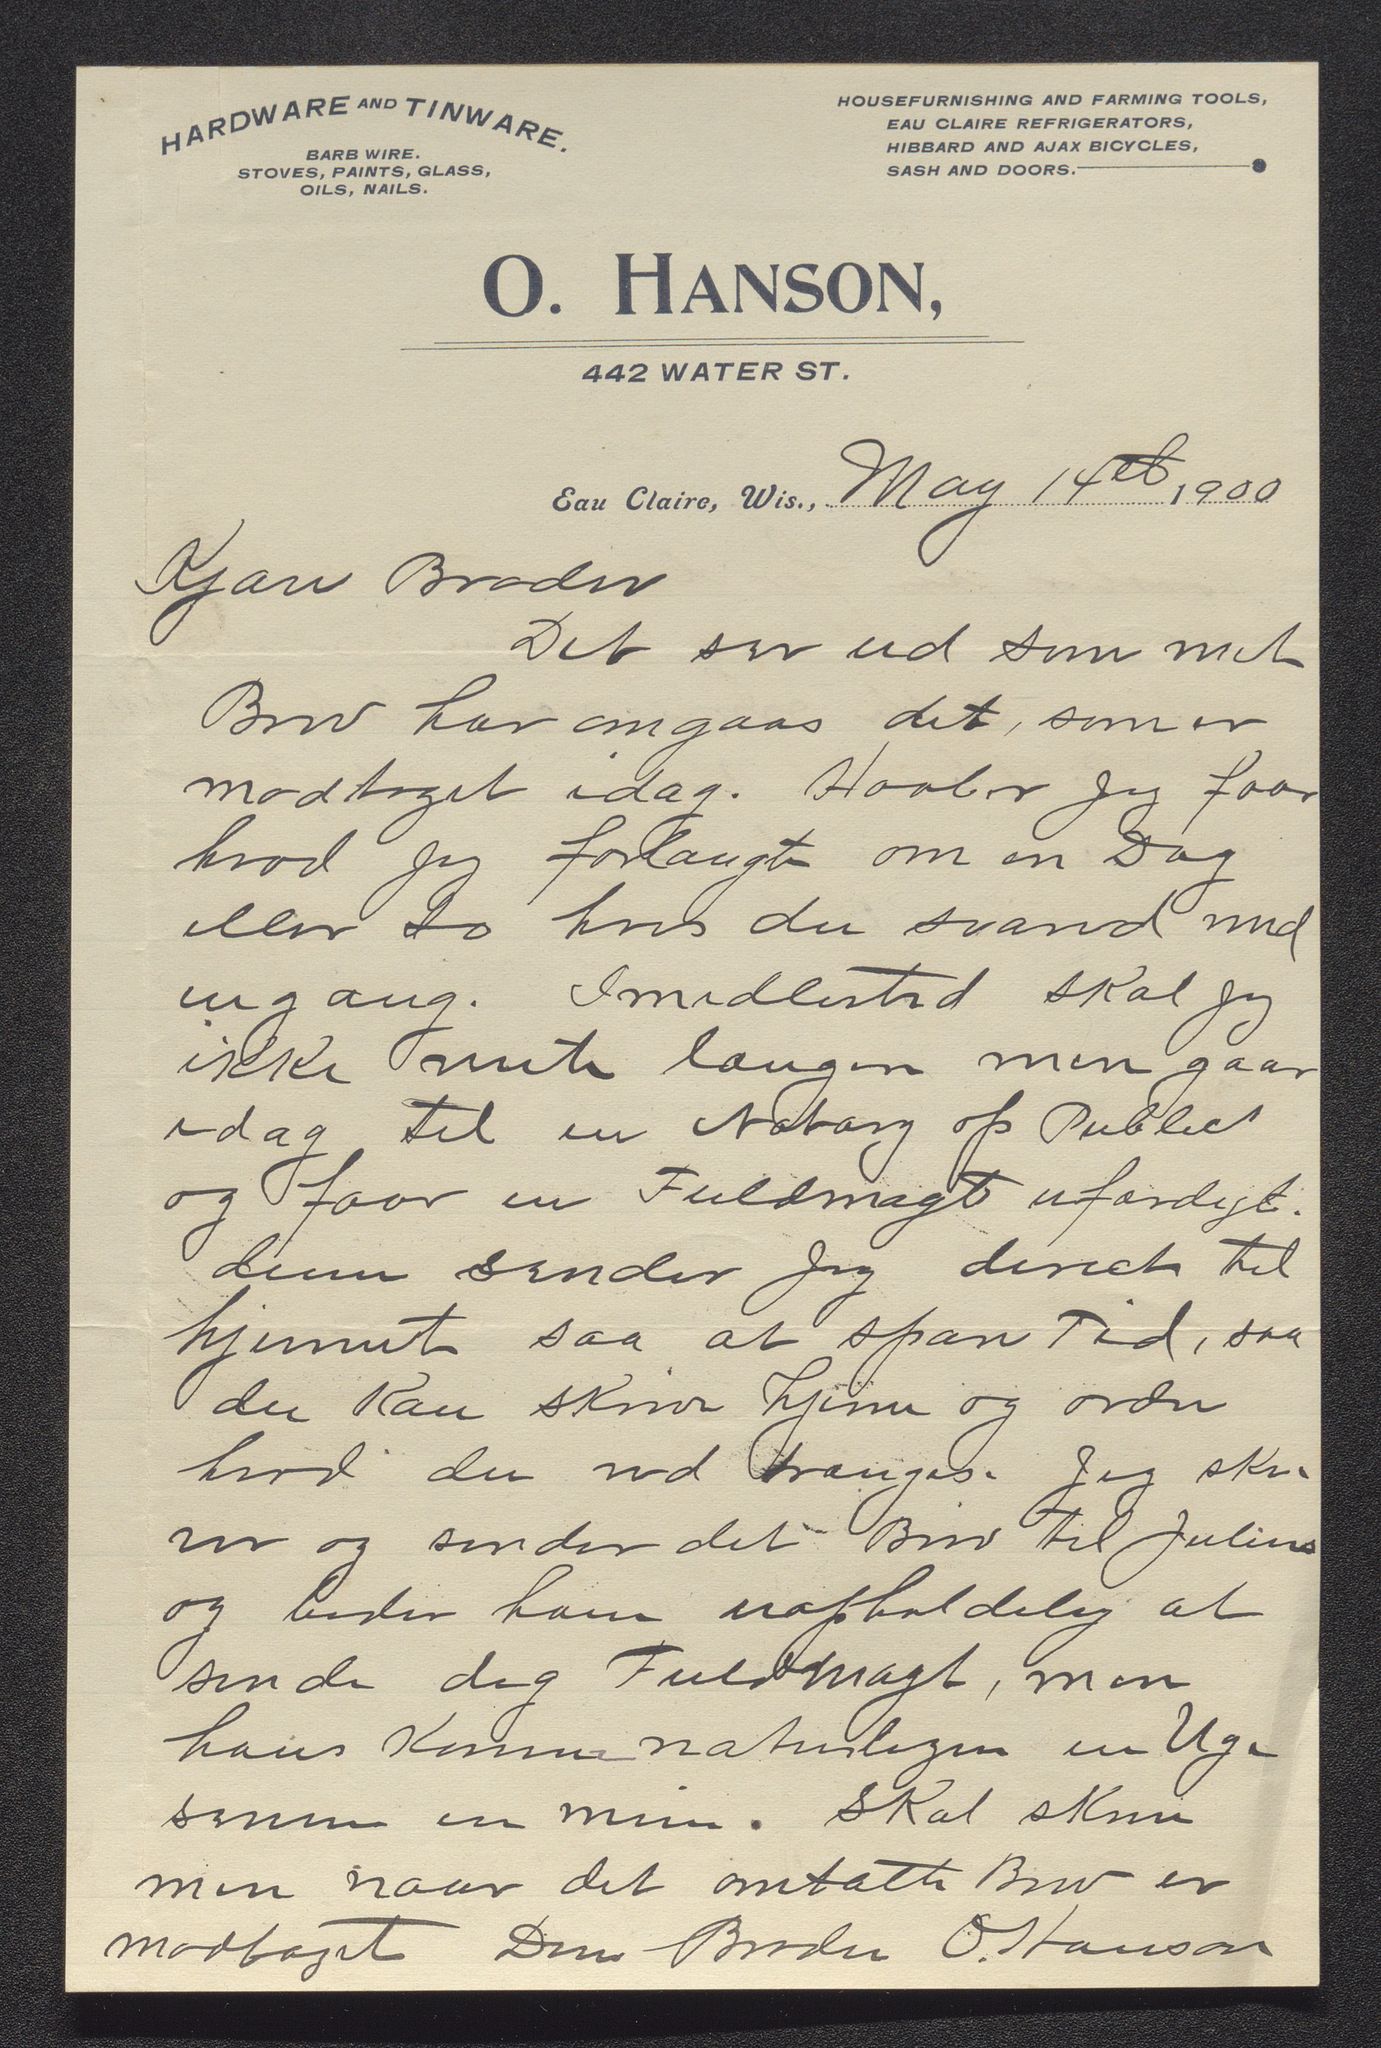 HARDWARE AND TINWARE.
BARB WIRE.
STOVES, PAINTS, GLASS,
OILS, NAILS.
HOUSEFURNISHING AND FARMING TOOLS,
EAU CLAIRE REFRIGERATORS,
HIBBARD AND AJAX BICYCLES,
SASH AND DOORS.
O. HANSON,
442 WATER ST.
Eau Claire, Wis., May 14th, 1900
Kjære Broder
Det ser ud som mit
Brev har omgaas det, som er
modtaget idag. Haaber Jeg faar
hvad Jeg forlangte om en Dag
eller to hvis du svared med
engang. Imidlertid skal Jeg
ikke vente længer men gaar
idag til en Notary of Publict
og faar en Fuldmagt ufærdigt.
denne sender Jeg direct til
hjemmet saa at spare Tid, saa
du kan skrive hjem og ordne
hvad der ved trænges. Jeg skri-
ver og sender det Brev til Julius
og beder ham uopholdelig at
sende dig Fuldmagt, men
hans kommer naturligen en Uge
senere en min. Skal skrive
men naar det omtalte Brev er
modtaget Din Broder O. Hanson